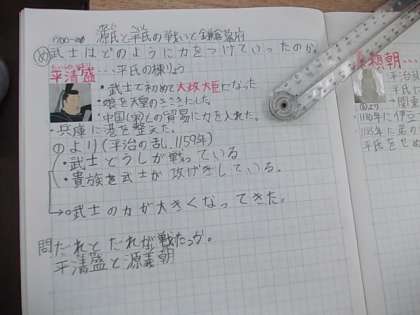 源氏と平氏の戦いと鎌倉幕府
め武士はどのように力をつけていったのか。
平清盛…平氏の棟りょう
・武士で初めて太政大臣になった
・娘を天皇のきさきにした。
・中国(宋)との貿易に力を入れた。
・兵庫に港を整えた。
より(平治の乱、1159年)
・武士どうしが戦っている
・貴族を武士が攻げきしている。
→○武士の力が大きくなってきた。
問だれとだれが戦たっか。
平清盛と源義朝
頼朝…
平治
平氏
→関
より
1180年に伊豆
1185年に弟の
平氏をせめ